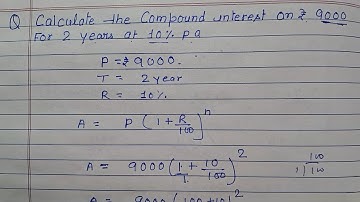 Q Calculate the Compound interest on ₹ 9000
For 2 years at 10% p a
P = ₹ 9000.
T = 2 year
R = 10%.
A = P (1 + R/100)^n
A = 9000 (1/1 + 10/100)^2
A = 9000 (100+10)^2